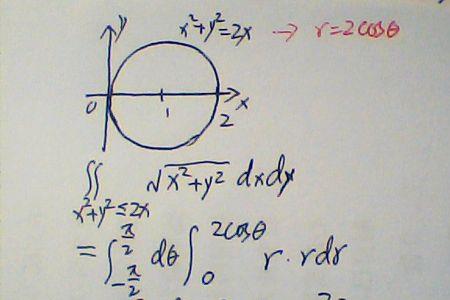 y
x²+y²=2x → r=2cosθ
0 1 2 x
∬ √x²+y² dxdy
x²+y²≤2x
=∫_{-π/2}^{π/2} dθ ∫_0^{2cosθ} r·rdr